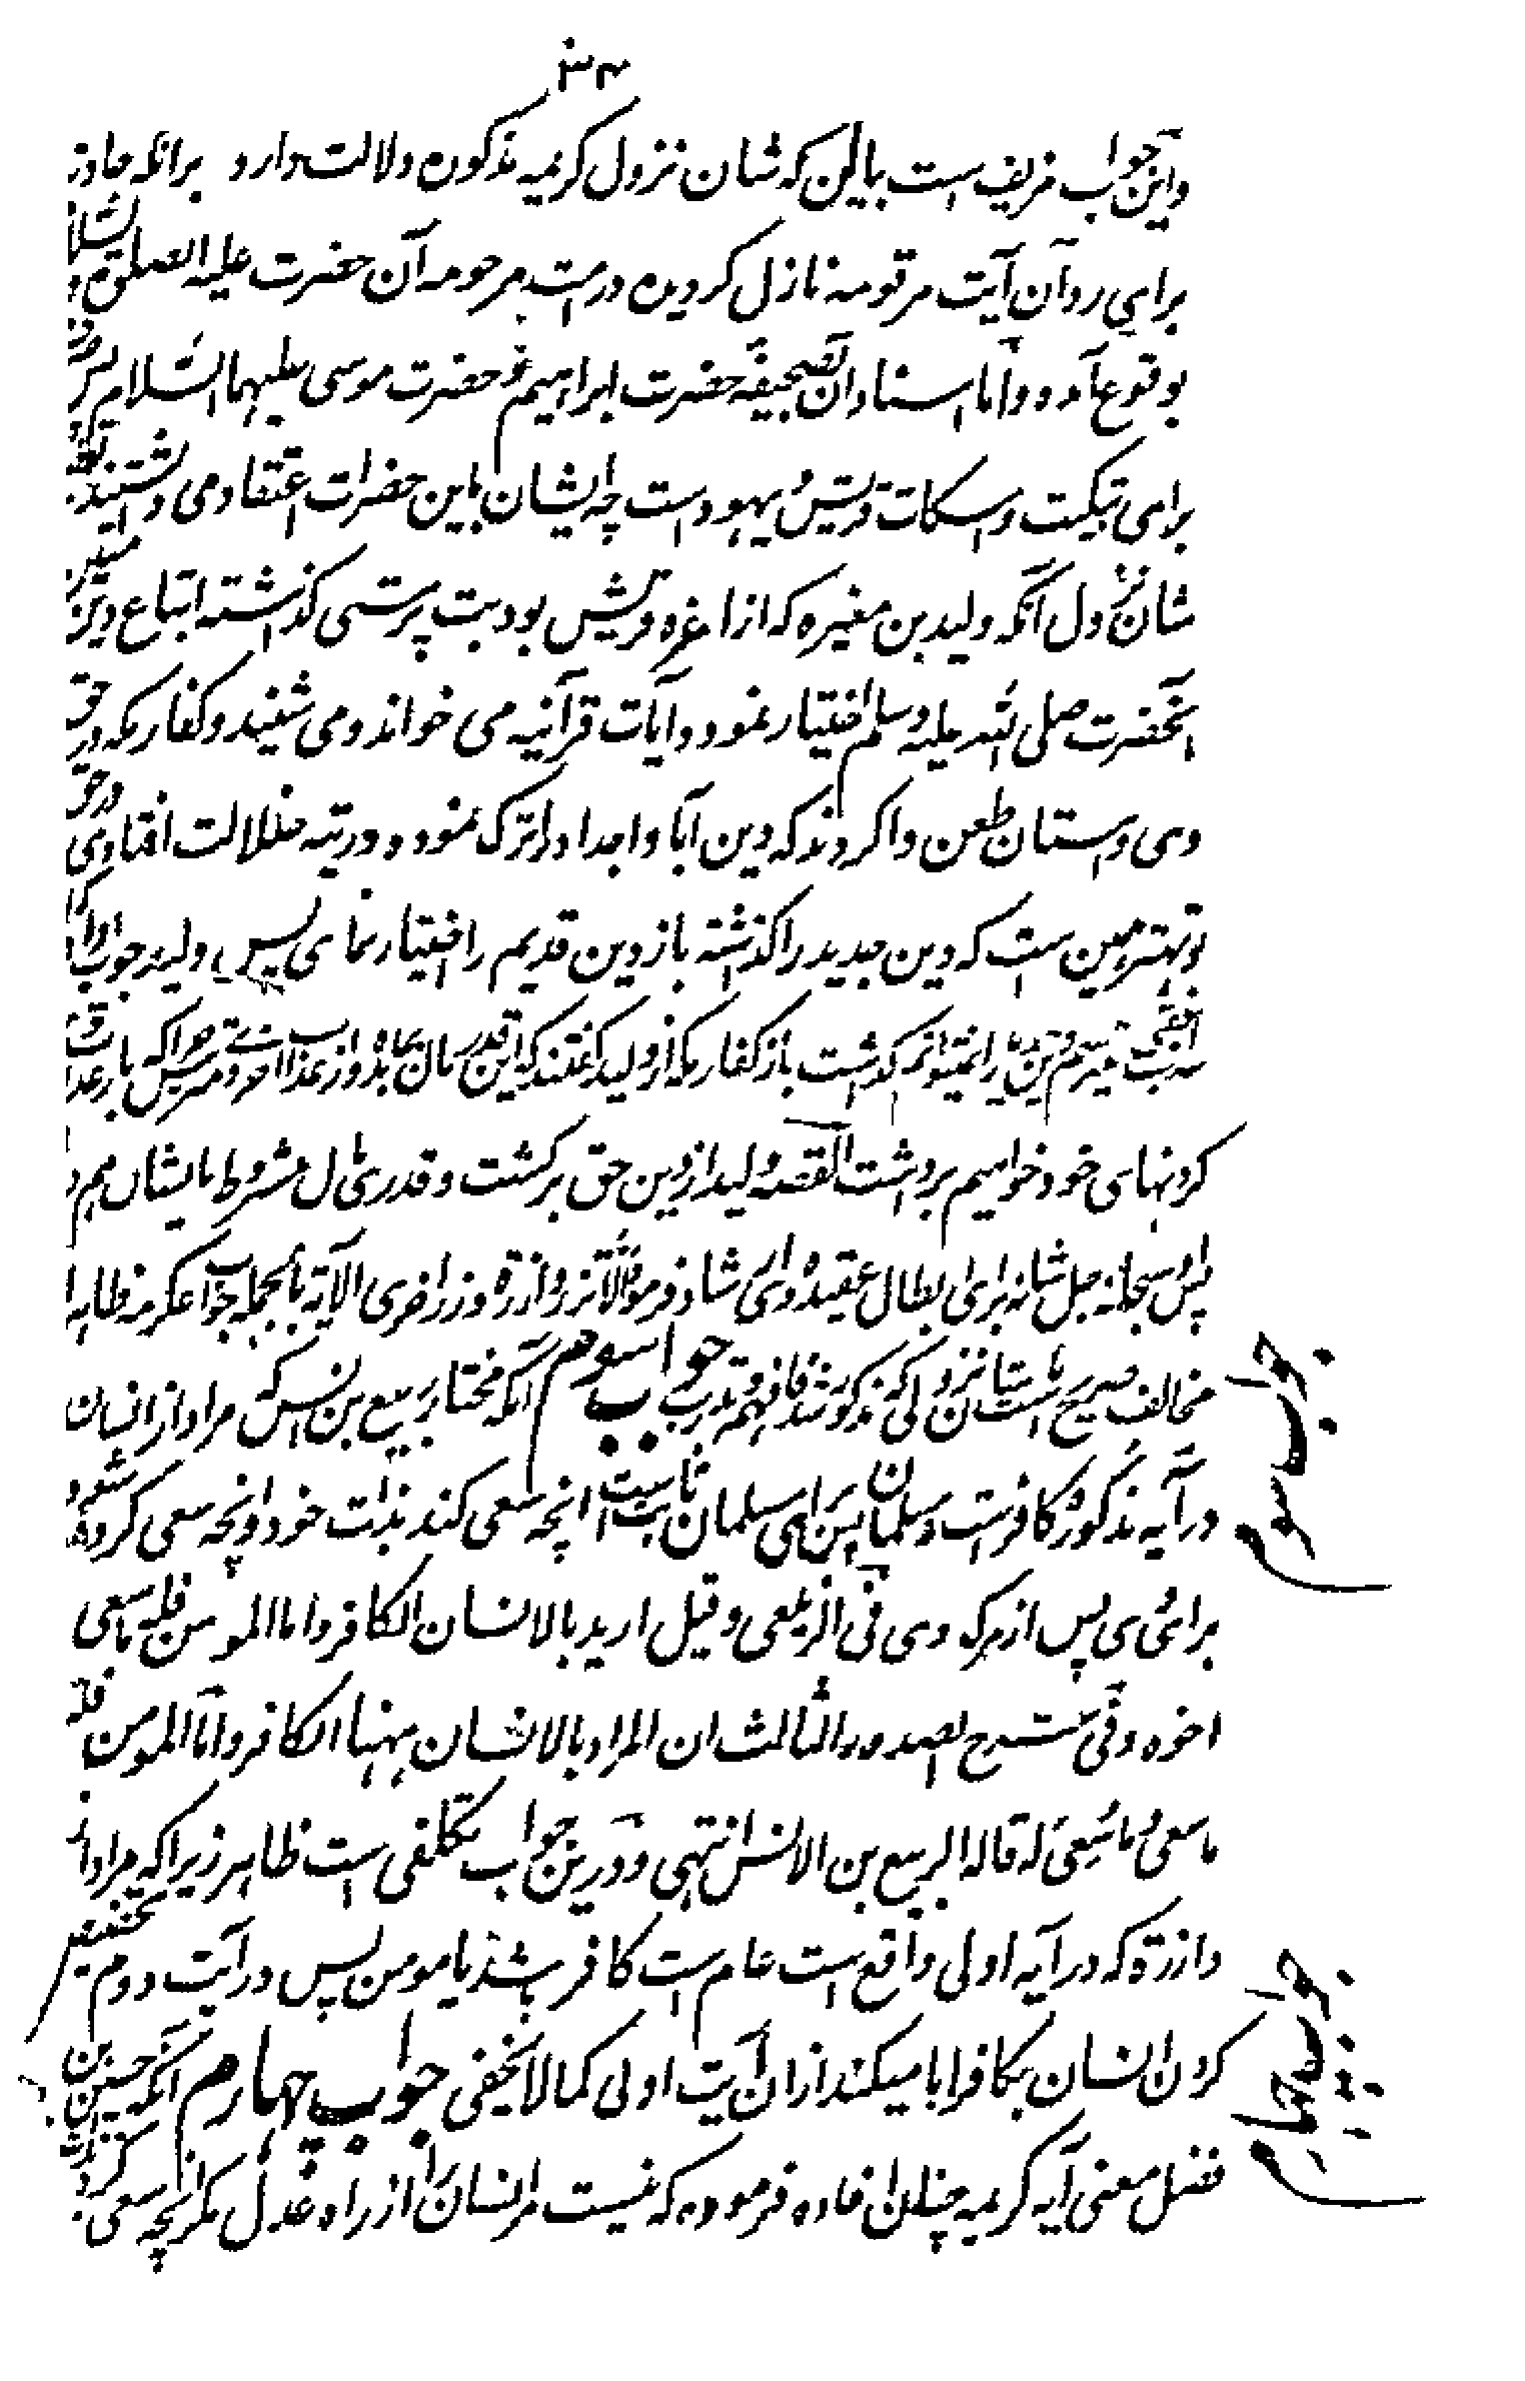 ۳۴
واین جواب مزیف است باین که شان نزول کریمه مذکوره دلالت دارد برانکه حادثه
برای رد آن آیت مرقومه نازل کردیده در امت مرحومه آن حضرت علیه الصلوة و السلام
بوقوع آمده و اما اسناد ان بصحیفه حضرت ابراهیم و حضرت موسی علیهما السلام پس
برای تبکیت و اسکات قریش و یهود است چه ایشان باین حضرات اعتقاد می داشتند
شان نزول آنکه ولید بن مغیره که از اعزه قریش بود بت پرستی کذاشته اتباع دین
آنحضرت صلی الله علیه وسلم اختیار نمود و آیات قرآنیه می خواند و می شنید و کفار مکه در حق
وی داستان طعن وا کردند که دین آبا و اجداد را ترک نموده در تیه ضلالت افتادی
بهتر همین ست که دین جدید را کذاشته باز دین قدیم را اختیار نمای پس ولید جواب داد
باز کفار مکه از ولید گفتند که این قدر مال بما بده و از عذاب اخروی مترس چرا که بار عذاب
کردنهای خود خواهیم برداشت القصه ولید از دین حق برکشت و قدری مال مشروط بایشان هم داد
پس او سبحانه جل شانه برای ابطال عقیده وی ارشاد فرمود ان لا تزر وازرة وزر اخری الآیة بالجمله جواب عکرمه ظاهرا
مخالف صریح باشان نزولی که مذکور شد فافهم و تدبر جواب سوم آنکه مختار ربیع بن انس که مراد از انسان
در آیه مذکور کافر است نه مسلمان پس برای مسلمان ثابت است انچه سعی کند بذات خود و انچه سعی کرده شود
برای وی پس از مرک وی فی الزیلعی وقیل ارید بالانسان الکافر واما المومن فله ما سعی
اخوه وفی شرح الصدور الثالث ان المراد بالانسان ههنا الکافر واما المومن فله
ما سعی و ما سُعِیَ له قاله الربیع بن الانس انتهی و درین جواب تکلفی است ظاهر زیرا که مراد از
وازرة که در آیه اولی واقع است عام است کافر باشد یا مومن پس در آیت دوم تخصیص
کردن انسان بکافر ابا میکند از ان آیت اولی کما لا یخفی جواب چهارم آنکه حسین بن
فضل معنی آیه کریمه چنان افاده فرموده که نیست مر انسان را از راه عدل مکر انچه سعی کرد
جواب سوم
جواب چهارم